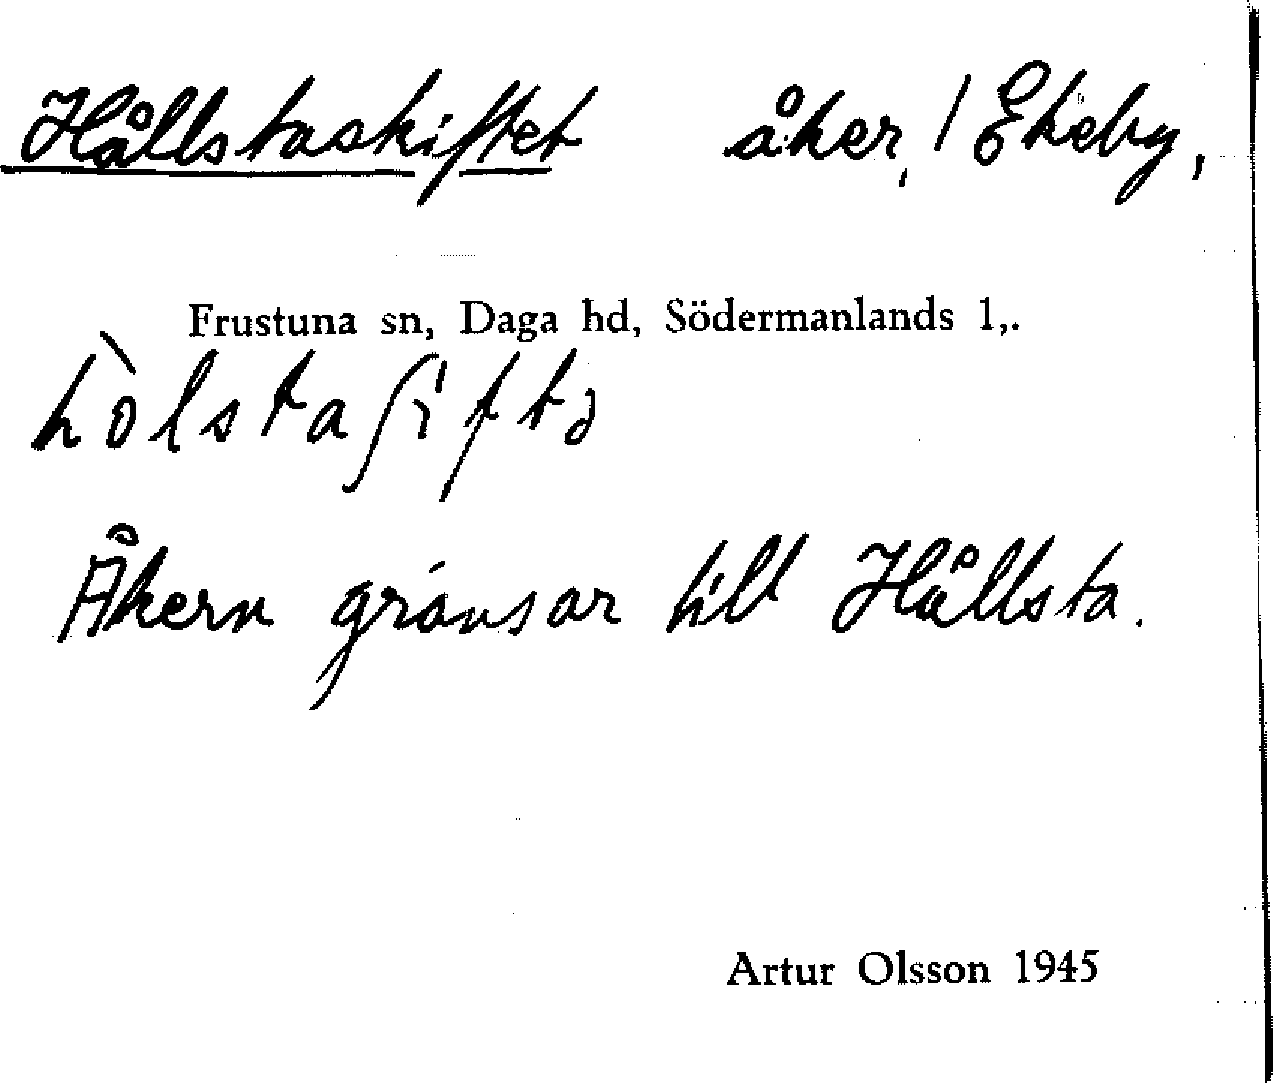 Hållstaskiftet åker, / Ekeby,
Frustuna sn, Daga hd, Södermanlands l,.
hòlstaʃiftə
Åkern gränsar till Hållsta.
Artur Olsson 1945